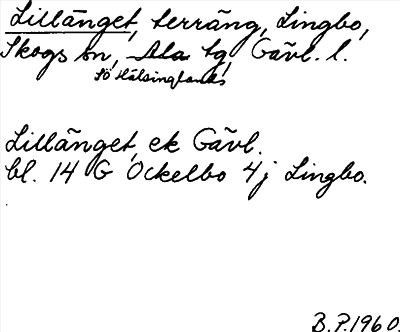 Lillänget, terräng, Lingbo,
Skogs sn, Ala tg, Gävl. l.
Sö Hälsinglands
Lillänget, ek Gävl.
bl. 14 G Ockelbo 4j Lingbo.
B.P.1960.